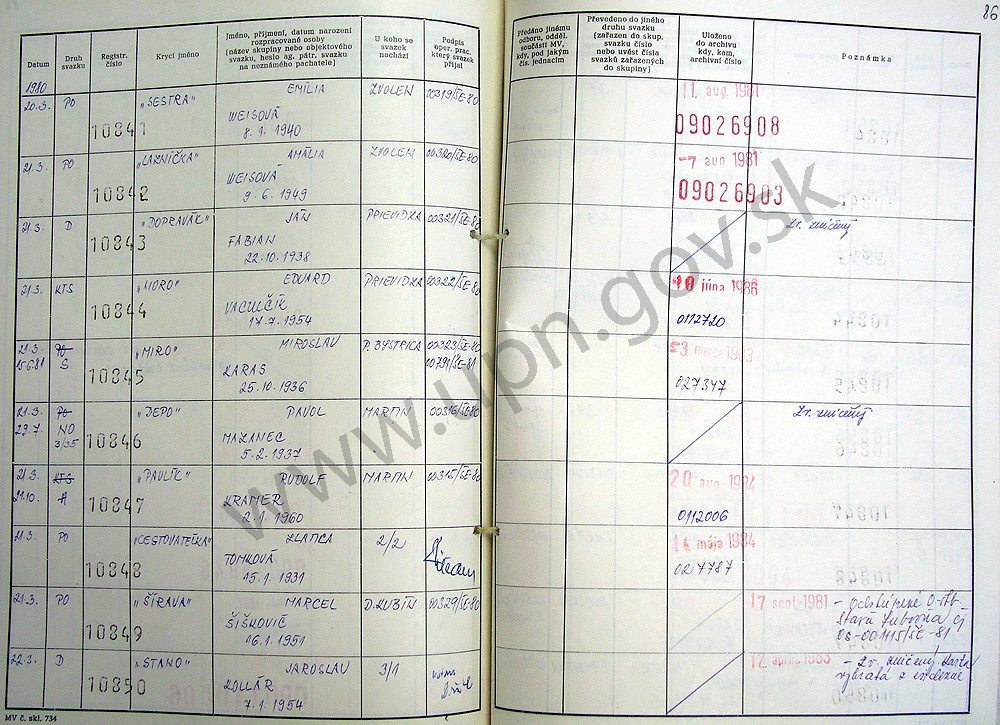 86
Datum
Druh svazku
Registr. číslo
Krycí jméno
Jméno, příjmení, datum narození rozpracované osoby (název skupiny nebo objektového svazku, heslo ag. pátr. svazku na neznámého pachatele)
U koho se svazek nachází
Podpis oper. prac. který svazek přijal
Předáno jinému odboru, odděl. součásti MV, kdy, pod jakým čís. jednacím
Převedeno do jiného druhu svazku (zařazen do skup. svazku číslo nebo uvést čísla svazků zařazených do skupiny)
Uloženo do archivu kdy, kam, archivní číslo
Poznámka
1980
20.3. PO 10841 "SESTRA" EMÍLIA ZVOLEN 00319/ŠE-80 11 aug. 1981
WEISOVÁ
8.1.1940 09026908
21.3. PO 10842 "LAZNÍČKA" AMÁLIA ZVOLEN 00320/ŠE-80 -7 aug 1981
WEISOVÁ
9.6.1949 09026903
21.3. D 10843 "DOPRAVÁK" JÁN PRIEVIDZA 00321/ŠE-80 Zv. zničený
FABIAN
22.10.1938
21.3. KTS 10844 "MORO" EDUARD PRIEVIDZA 00322/ŠE-80 10 října 1986
VACULČÍK
17.7.1954 0112720
21.3. PO 10845 "MIRO" MIROSLAV P. BYSTRICA 00323/ŠE-80 -3 marca 1983
15.6.81 S KARAS 00791/ŠE-81
25.10.1936 027347
21.3. PO 10846 "DEPO" PAVOL MARTIN 00316/ŠE-80 Zv. zničený
29.7. NO MAZANEC
3/35 5.2.1937
21.3. KTS 10847 "PAVLÍK" RUDOLF MARTIN 00315/ŠE-80 20 aug 1984
21.10. A KRAMER
2.1.1960 0112006
21.3. PO 10848 "CESTOVATEĽKA" ZLATICA 2/2 14 mája 1984
TOMKOVÁ 027787
15.1.1931
21.3. PO 10849 "ŠÍRAVA" MARCEL D. KUBÍN 00329/ŠE-80 17 sept 1981 - Odstúpené O-ŠtB
ŠIŠKOVIČ Stará Ľubovňa čj
16.1.1951 OS-00115/ŠČ-81
22.3. D 10850 "STANO" JAROSLAV 3/1 12. apríla 1983 - Zv. zničený karta
KOLLÁR vybratá z evidencie
7.1.1954
MV č. skl. 734
www.upn.gov.sk